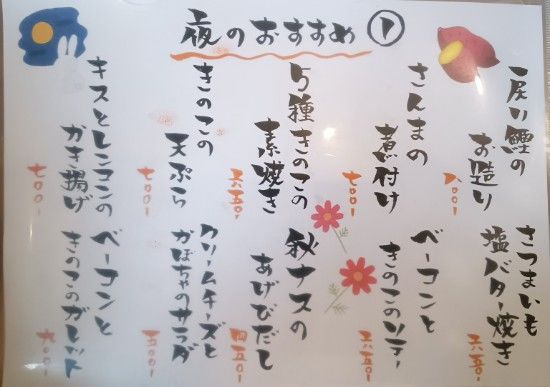 夜のおすすめ ①
戻り鰹の
お造り
八〇〇ー
さんまの
煮付け
七〇〇ー
5種きのこの
素焼き
六五〇ー
きのこの
天ぷら
七〇〇ー
キスとレンコンの
かき揚げ
七〇〇ー
さつまいも
塩バター焼き
六五〇ー
ベーコンと
きのこのソテー
六五〇ー
秋ナスの
あげびだし
四五〇ー
クリームチーズと
かぼちゃのサラダ
五〇〇ー
ベーコンと
きのこのガレット
九〇〇ー